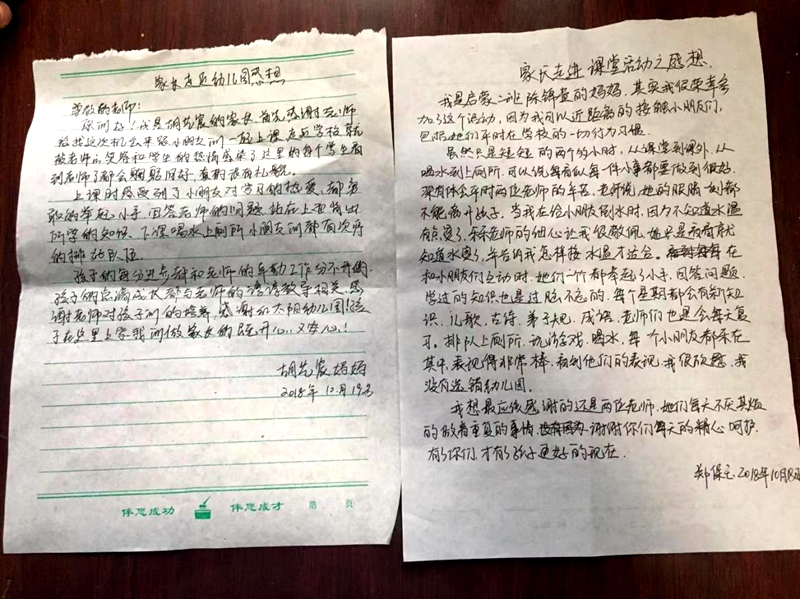 家长走近幼儿园感想
尊敬的老师:
你们好!我是胡艺宸的家长 首先感谢老师
给我这次机会来跟小朋友们一起上课 走近学校就
被老师的笑容和学生的热情感染了 这里的每个学生看
到老师了都会鞠躬问好,真的很有礼貌。
上课时感受到了小朋友对学习的热爱,都勇
敢的举起小手 回答老师的问题 站在上面背出
所学的知识。下课喝水上厕所小朋友们都有次序
的排成队伍。
孩子的每份进步都和老师的辛勤工作分不开的
孩子的点滴成长都与老师的谆谆教导相关,感
谢老师对孩子们的培养,感谢红太阳幼儿园!孩
子在这里上学我们做家长的既开心,又安心!
胡艺宸妈妈
2018年10月19号
伴您成功 伴您成才 第 页
家长走进课堂活动之感想
我是启蒙二班 陈锦萱的妈妈,其实我很荣幸参
加这个活动,因为我可以近距离的接触小朋友们,
包括她们平时在学校的一切行为习惯.
虽然只是短短的两个的小时,从课堂到课外,从
喝水到上厕所,可以说每看似每一件小事都要做到很好.
深有体会平时两位老师的辛苦.老师们她的眼睛一刻都
不能离开孩子,当我在给小朋友倒水时,因为不知道水温
有点烫了,乐乐老师的细心让我很敬佩,她只是看看就
知道水烫了,年后的我怎样接水温才适合. 在
和小朋友们互动时,她们一个个都举起了小手.回答问题.
学过的知识也是过脸不忘的.每个星期都会有新知
识,儿歌,古诗,弟子规,成语,老师们也是会每天复
习,排队上厕所,玩游戏,喝水,每一个小朋友都乐在
其中,表现得非常棒.看到他们的表现 我很欣慰,我
没有选错幼儿园.
我想最应该感谢的还是两位老师,她们每天不厌其烦
的做着重复的事情, 谢谢你们每天的精心呵护.
有了你们,才有了孩子更好的现在.
郑保 2018年10月18日